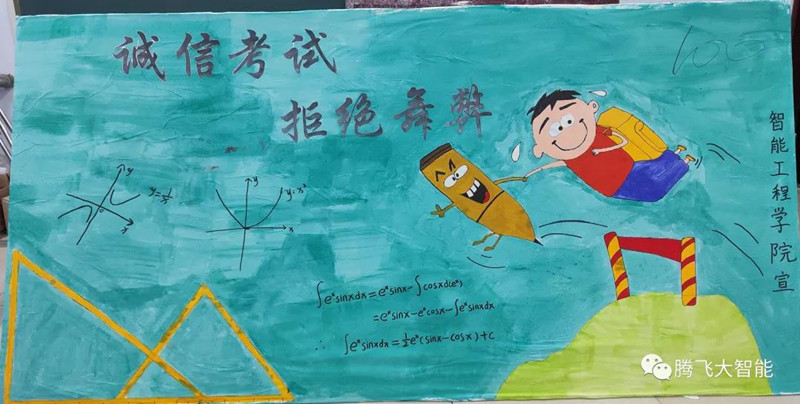 诚信考试
拒绝舞弊
100
智能工程学院宣
y
y=1/x
x
y
y=x²
x
∫eˣsinxdx=eˣsinx-∫cosxd(eˣ)
=eˣsinx-eˣcosx-∫eˣsinxdx
∴ ∫eˣsinxdx=½eˣ(sinx-cosx)+c
腾飞大智能